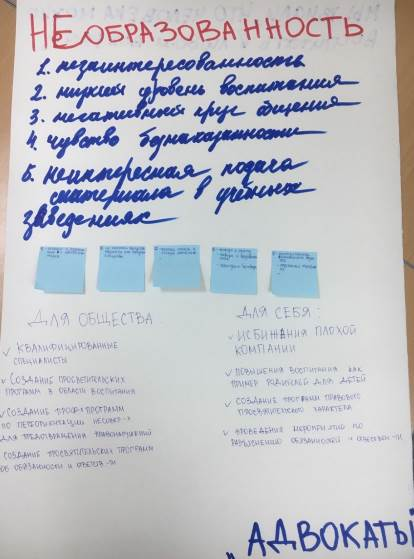 НЕОБРАЗОВАННОСТЬ
1. незаинтересованность
2. низкий уровень воспитания
3. негативный круг общения
4. чувство безнаказанности
5. неинтересная подача
материала в учебных
заведениях
ДЛЯ ОБЩЕСТВА
✓ КВАЛИФИЦИРОВАННЫЕ
СПЕЦИАЛИСТЫ
✓ СОЗДАНИЕ ПРОСВЕТИТЕЛЬСКИХ
ПРОГРАММ В ОБЛАСТИ ВОСПИТАНИЯ
✓ СОЗДАНИЕ ПРОФ. ПРОГРАММ
ПО ПЕРЕОРИЕНТАЦИИ НЕСОВЕР-Х
ДЛЯ ПРЕДОТВРАЩЕНИЯ ПРАВОНАРУШЕНИЙ
СОЗДАНИЕ ПРОСВЕТИТЕЛЬСКИХ ПРОГРАММ
ОБ ОБЯЗАННОСТИ И ОТВЕТСТВ-ТИ
ДЛЯ СЕБЯ:
✓ ИСБИЖАНИЯ ПЛОХОЙ
КОМПАНИИ
✓ ПОВЫШЕНИЯ ВОСПИТАНИЯ КАК
ПРИМЕР РОДИТЕЛЕЙ ДЛЯ ДЕТЕЙ
✓ СОЗДАНИЕ ПРОГРАММ ПРАВОВОГО
ПРОСВЯТИТЕЛЬСКОГО ХАРАКТЕРА
✓ ПРОВЕДЕНИЯ МЕРОПРИЯТИЙ ПО
РАЗЪЯСНЕНИЮ ОБЯЗАННОСТЕЙ И ОТВЕТСТВЕН-ТИ
„АДВОКАТЫ